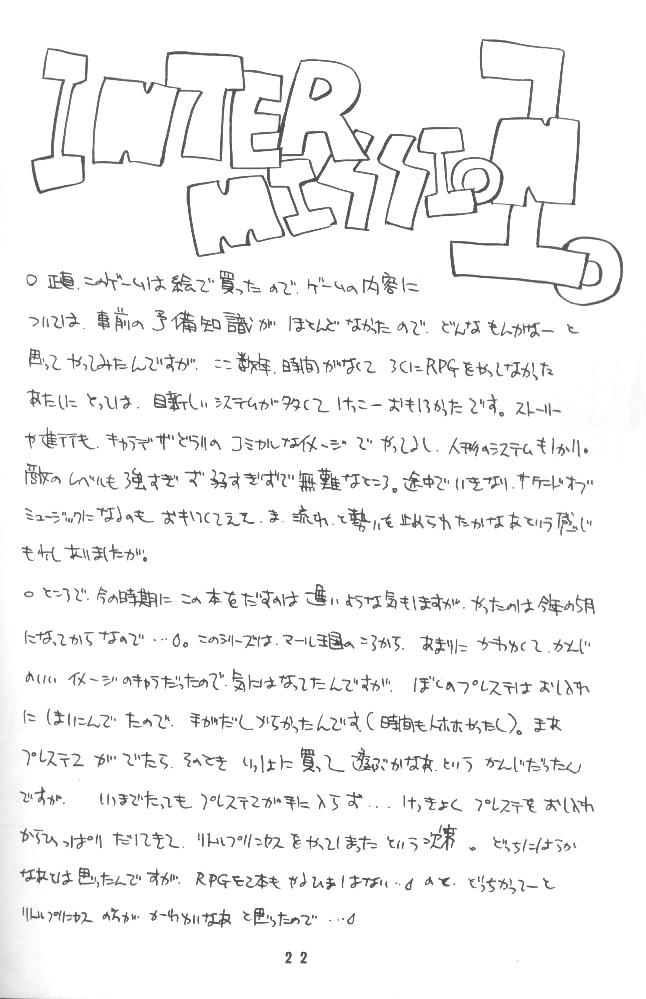 INTER
MISSION
INTO
○正直、このゲームは絵で買ったので、ゲームの内容に
ついては、事前の予備知識がほとんどなかったので、どんなもんかなーと
思ってやってみたんですが、ここ数年、時間がなくてろくにRPGをやってなかった
あたしにとっては、目新しいシステムが多くてけっこーおもしろかったです。ストーリー
や進行も、キャラデザどおりのコミカルなイメージでやってるし、人形のシステムも
敵のレベルも強すぎず弱すぎずで無難なところ。途中でいきなり、サウンドオブ
ミュージックになるのも、ま、流れと勢いを止められたかなあという感じ
もしありましたが。
○ところで、今の時期にこの本をだすのは遅いような気もしますが、やったのは今年の5月
になってからなので…。このシリーズは、マール王国のころから、あまりにかわいくて、かんじ
のいいイメージのキャラだったので、気にはなってたんですが、ぼくのプレステはおしいれ
にはいってたので、手がだしづらかったんです(時間もなかったし)。まあ
プレステ2がでたら、そのときいっしょに買って遊ぶかなあ、というかんじだったん
ですが、いつまでたってもプレステ2が手に入らず…けっきょくプレステをおしいれ
からひっぱりだしてきて、リトルプリンセスをやってしまったという次第。どっちにしようか
なあとは思ったんですが、RPGを2本もやるひまはない…ので、どっちかってーと
リトルプリンセスの方がかーわいいなあと思ったので…
22